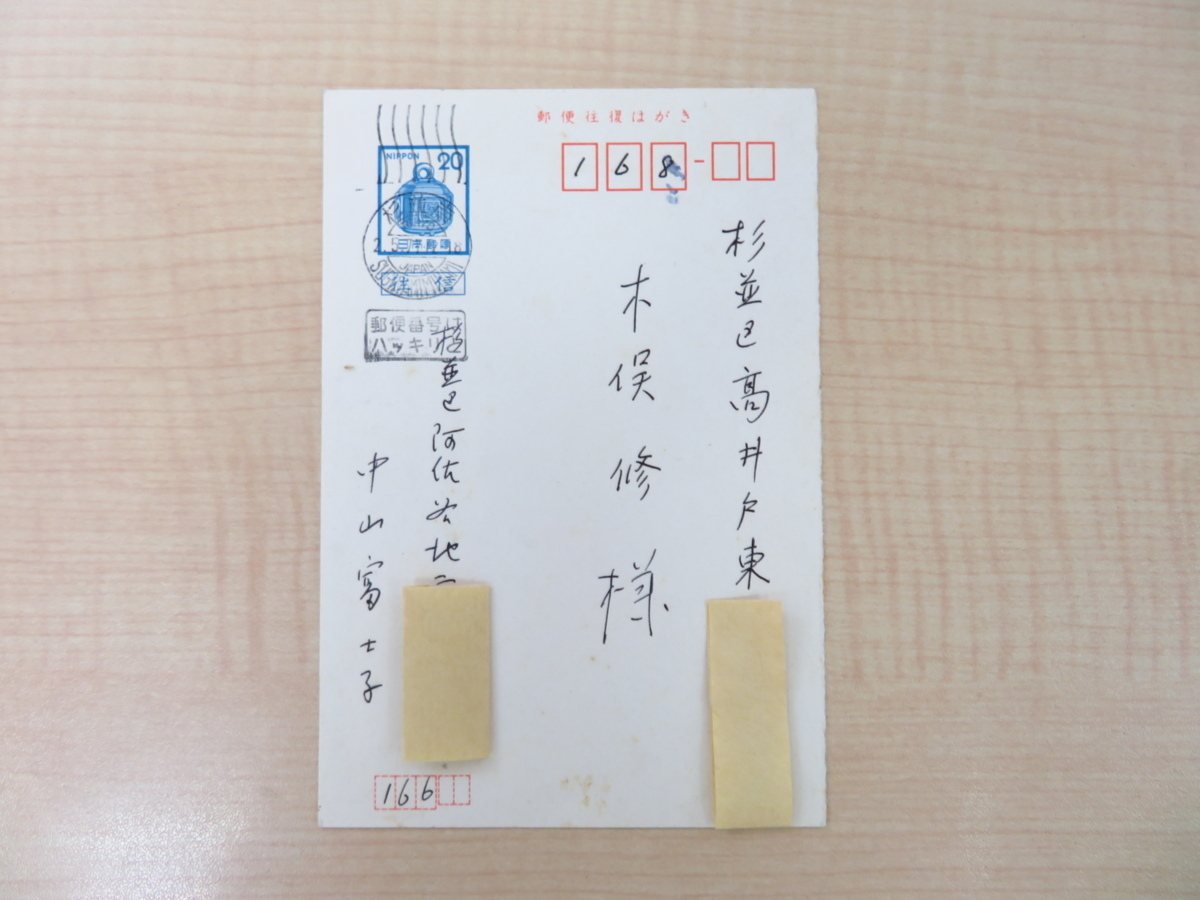 郵便往復はがき
168
杉並区高井戸東
木俣修様
NIPPON 20
日本郵便
往信
郵便番号は
ハッキリ
杉並区阿佐谷北二
中山富士子
166